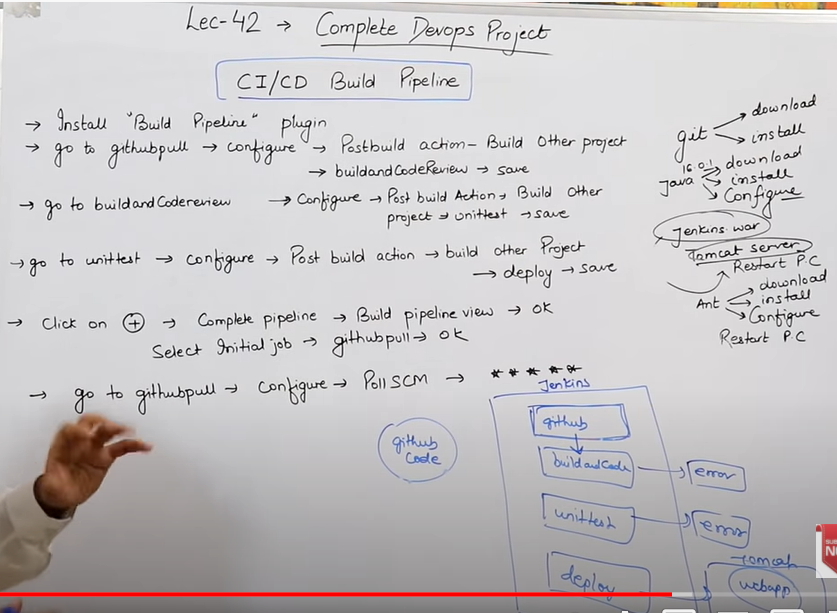 Lec-42 → Complete Devops Project
CI/CD Build Pipeline
→ Install "Build Pipeline" plugin
→ go to githubpull → configure → Postbuild action - Build Other project
→ buildandCodeReview → save
→ go to buildandCodereview → Configure → Post build Action → Build Other
project → unittest → save
→ go to unittest → configure → Post build action → build other Project
→ deploy → save
→ Click on + → Complete pipeline → Build pipeline view → OK
Select Initial job → githubpull → OK
→ go to githubpull → configure → Poll SCM → * * * * *
git → download
→ install
Java 16.0.1 → download
→ install
→ Configure
Jenkins war
Tomcat server
Restart PC
Ant → download
→ install
→ Configure
Restart PC
github
Code
Jenkins
github
buildandCode → error
unittest → error
deploy →
Tomcat
webapp